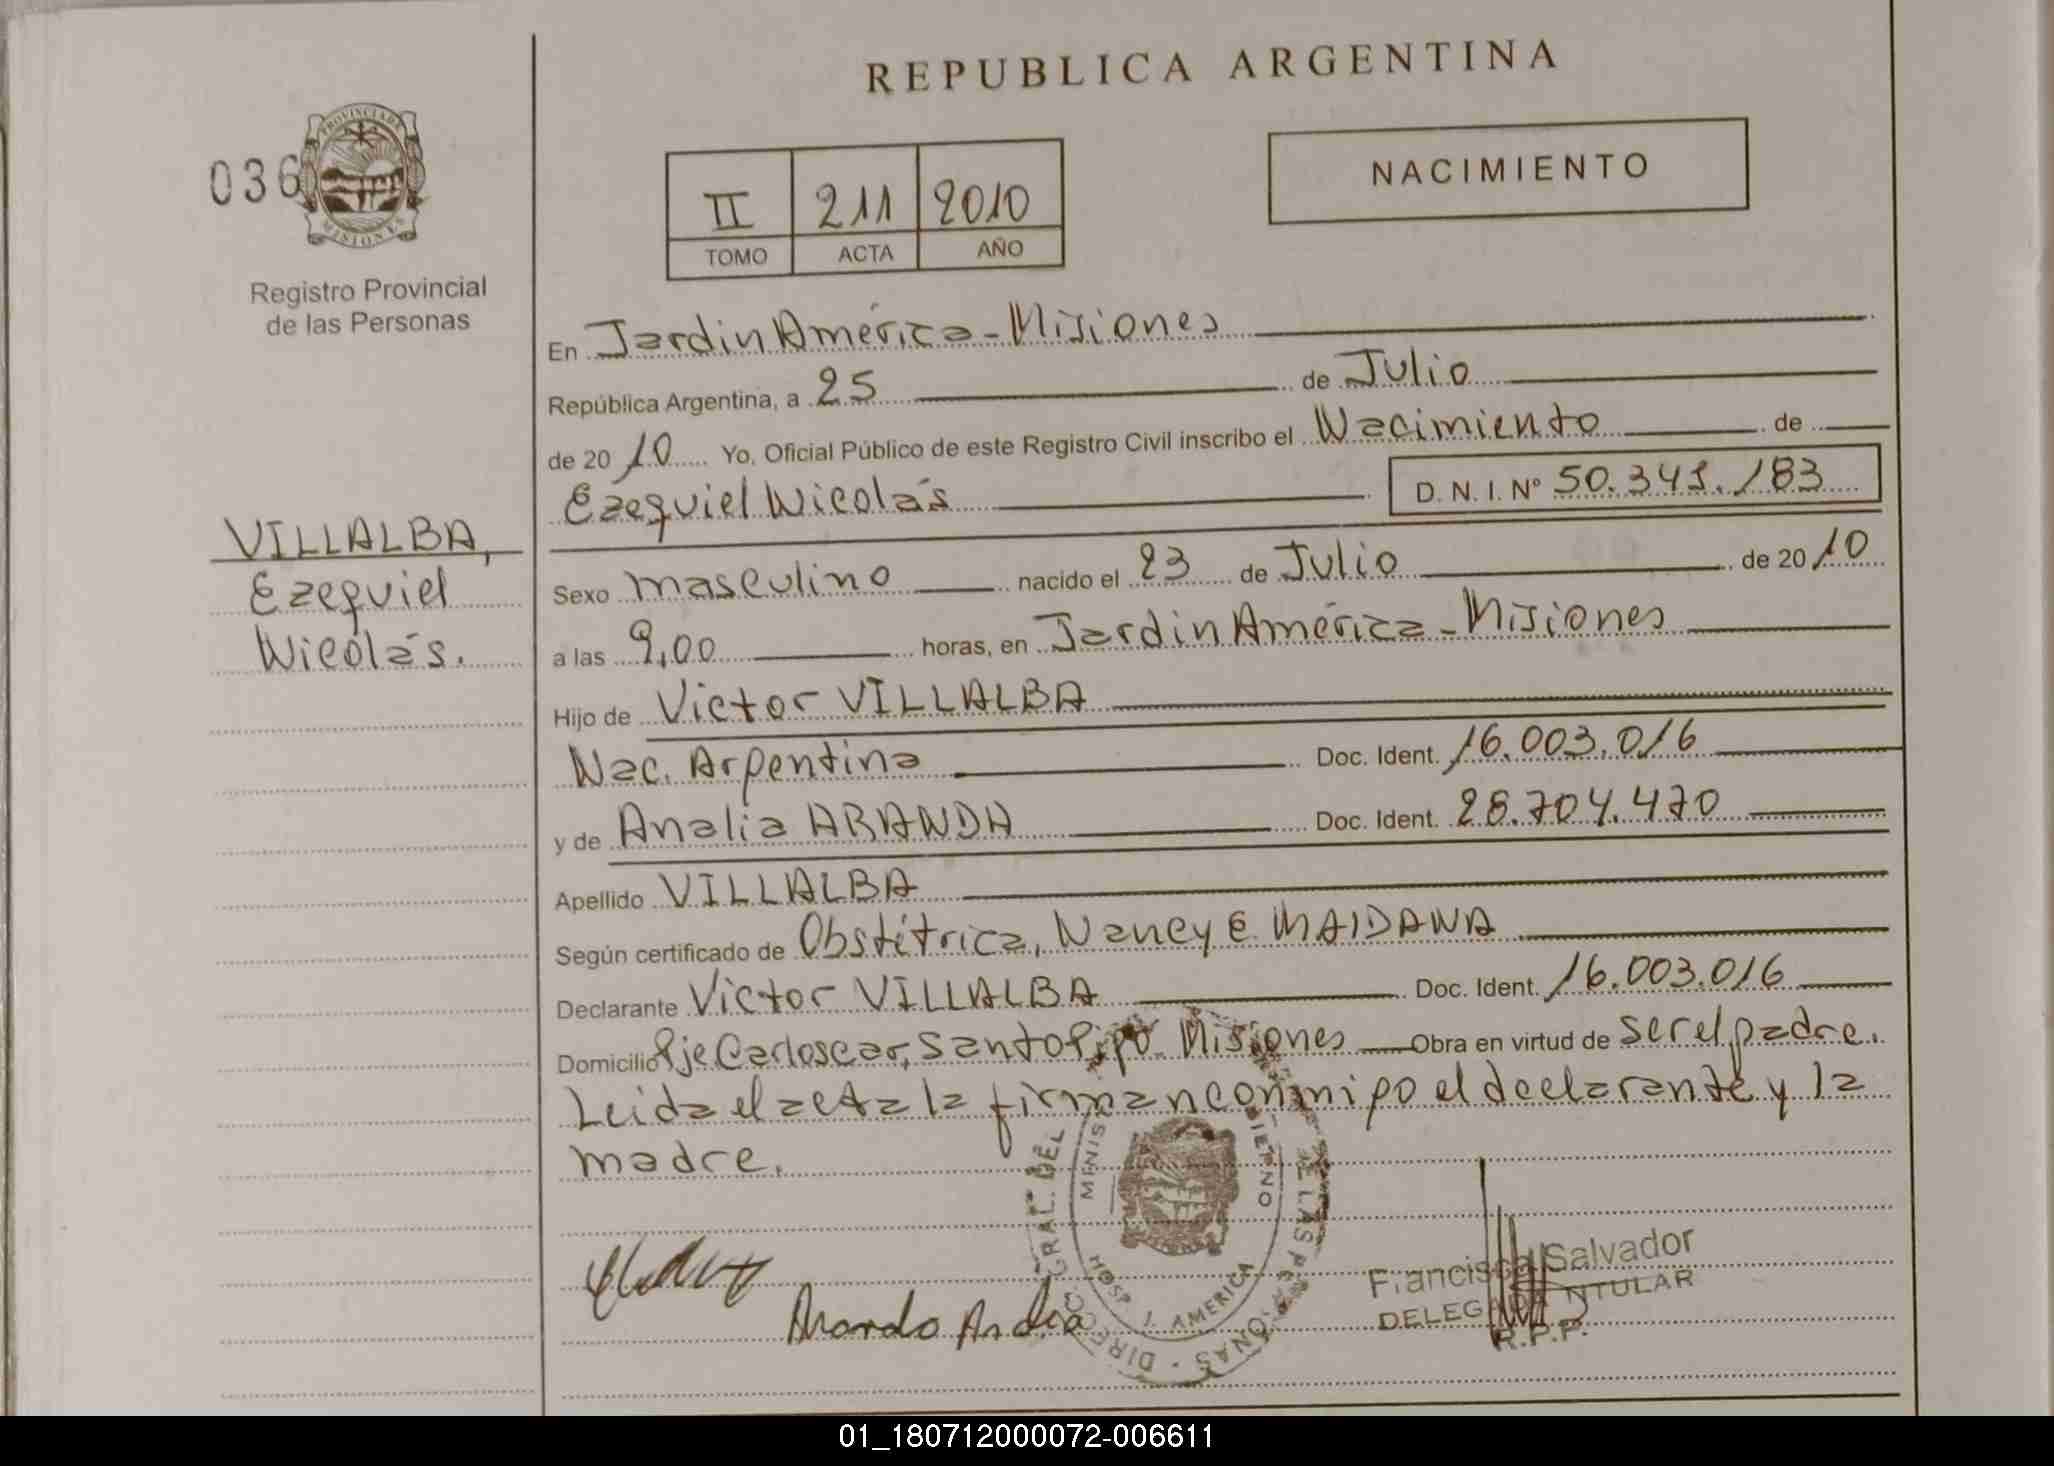 REPUBLICA ARGENTINA
036
PROVINCIA DE
MISIONES
Registro Provincial
de las Personas
II 211 2010
TOMO ACTA AÑO
NACIMIENTO
VILLALBA,
Ezequiel
Nicolás.
En Jardin América - Misiones
República Argentina, a 25 de Julio
de 2010 Yo, Oficial Público de este Registro Civil inscribo el Nacimiento de
Ezequiel Nicolás D. N. I. Nº 50.341.183
Sexo masculino nacido el 23 de Julio de 2010
a las 9,00 horas, en Jardin América - Misiones
Hijo de Victor VILLALBA
Nac. Argentina Doc. Ident. 16.003.016
y de Analia ARANDA Doc. Ident. 28.704.470
Apellido VILLALBA
Según certificado de Obstétrica, Nancy E. MAIDANA
Declarante Victor VILLALBA Doc. Ident. 16.003.016
Domicilio Pje Carloscar, Santo Pipó Misiones Obra en virtud de ser el padre.
Leida el acta la firman conmigo el declarante y la
madre.
DIRECC. GRAL. DEL DE LAS PERSONAS
MINIS
HOSP. J. AMERICA
Francisca Salvador
DELEGADA TITULAR
R.P.P.
01_180712000072-006611